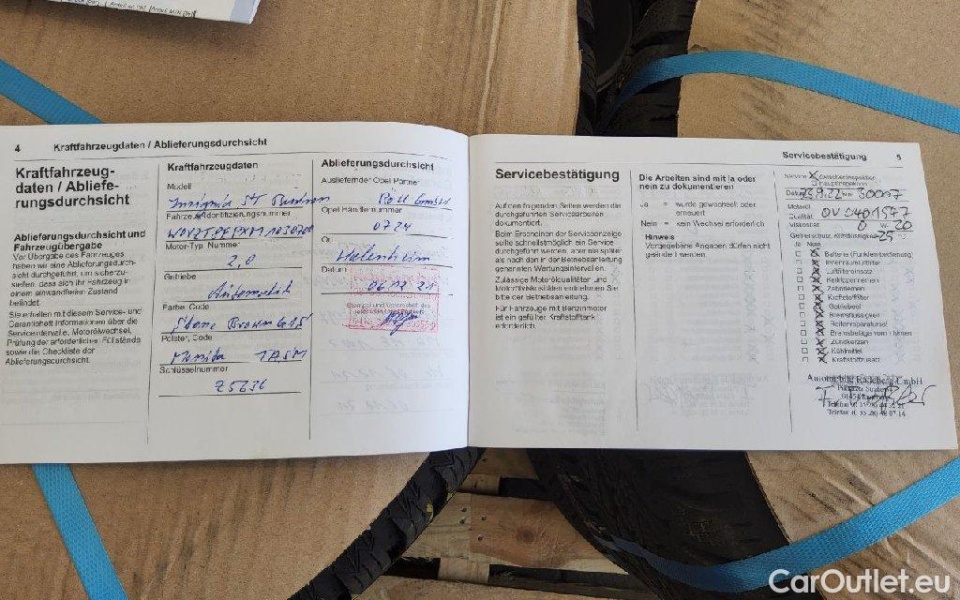 4 Kraftfahrzeugdaten / Ablieferungsdurchsicht
Kraftfahrzeug-
daten / Abliefe-
rungsdurchsicht
Ablieferungsdurchsicht und
Fahrzeugübergabe
Vor Übergabe des Fahrzeuges
haben wir eine Ablieferungsdurch-
sicht durchgeführt, um sicherzu-
stellen, dass sich Ihr Fahrzeug in
einem einwandfreien Zustand
befindet.
Sie erhalten mit diesem Service- und
Garantieheft Informationen über die
Serviceintervalle, Motorölwechsel,
Prüfung der erforderlichen Füllstände
sowie die Checkliste der
Ablieferungsdurchsicht.
Kraftfahrzeugdaten
Modell
Insignia ST
Fahrzeug-Identifizierungsnummer
Motor-Typ, Nummer
2,0
Getriebe
Automatik
Farbe, Code
Polster, Code
TASM
Schlüsselnummer
Z5236
Ablieferungsdurchsicht
Ausliefernder Opel Partner
GmbH
Opel Händlernummer
0724
Ort
Datum
06.12.21
Servicebestätigung 5
Servicebestätigung
Auf den folgenden Seiten werden die
durchgeführten Servicearbeiten
dokumentiert.
Beim Erscheinen der Serviceanzeige
sollte schnellstmöglich ein Service
durchgeführt werden, aber nie später
als nach den in der Betriebsanleitung
genannten Wartungsintervallen.
Zulässige Motorölqualitäten und
Motorölviskositäten entnehmen Sie
bitte der Betriebsanleitung.
Für Fahrzeuge mit Benzinmotor
ist ein gefüllter Kraftstofftank
erforderlich.
Die Arbeiten sind mit ja oder
nein zu dokumentieren
Ja = wurde gewechselt oder
erneuert
Nein = kein Wechsel erforderlich
Hinweis
Vorgegebene Angaben dürfen nicht
geändert werden.
Service
Datum 23.9.22 km 30017
Motoröl
Qualität OV0401547
Viskosität 0 W- 20
-25
Ja Nein
Batterie (Funkfernbedienung)
Innenraumluftfilter
Luftfiltereinsatz
Keilrippenriemen
Zahnriemen
Kraftstofffilter
Getriebeöl
Bremsflüssigkeit
Reifenreparaturset
Bremsbeläge vorn / hinten
Zündkerzen
Kühlmittel
Kraftstoffzusatz
Automobile Radeberg GmbH
CarOutlet.eu